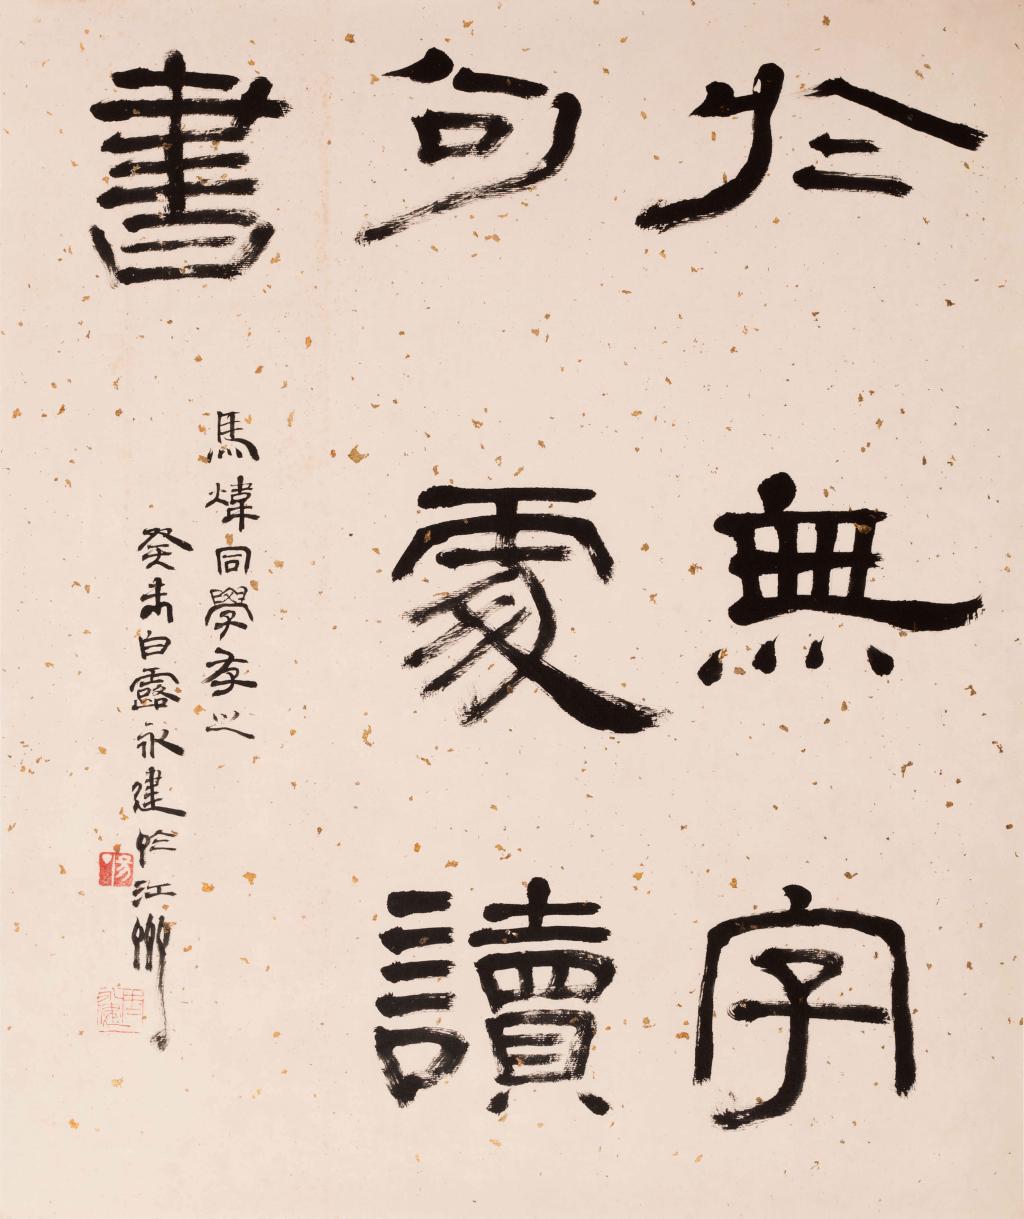 於無字
句處讀
書
馬煒同學存之
癸未白露永建於江州